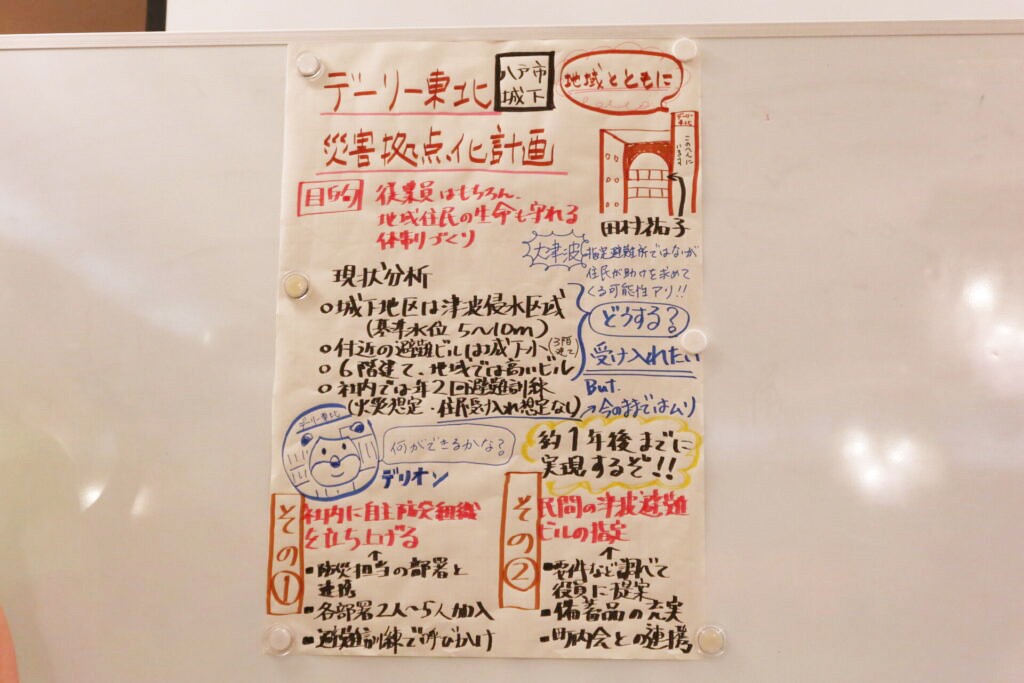 デーリー東北
八戸市
城下
地域とともに
災害拠点化計画
デーリー東北
このへんに
います
田村祐子
目的
従業員はもちろん、
地域住民の生命も守れる
体制づくり
大津波
指定避難所ではないが
住民が助けを求めて
くる可能性アリ!!
現状分析
○城下地区は津波浸水区域
(基準水位 5〜10m)
○付近の避難ビルは城下小(3階建て)
○6階建て、地域では高いビル
○社内では年2回避難訓練
(火災想定・住民受け入れ想定なし)
どうする?
受け入れたい
But.
→今のままではムリ
デーリー東北
何ができるかな?
デリオン
約1年後までに
実現するぞ!!
その①
社内に自主防災組織
を立ち上げる
↑
・防災担当の部署と
連携
・各部署2人〜5人加入
・避難訓練で呼びかけ
その②
民間の津波避難
ビルの指定
↑
・要件など調べて
役員に提案
・備蓄品の充実
・町内会との連携